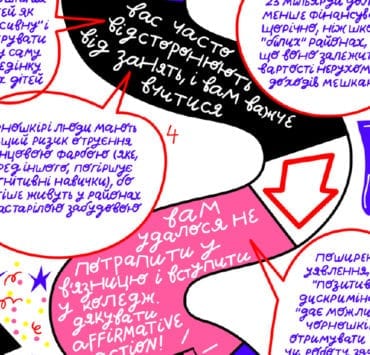 дітей як
самі
дітей
вас часто
відсторонюють
від занять, і вам важче
вчитися
менше фінансув
щорічно, ніж шко
"білих" районах,
що воно залежит
вартості нерухом
доходів мешкан
4
рношкірі люди мають
щий ризик отруєння
нцовою фарбою (яке,
ред іншого, погіршує
гнітивні навички), бо
тіше живуть у районах
астарілою забудовою
вам
удалося не
потрапити у
в'язницю і вступити
у коледж.
дякувати
affirmative
action!
поширен
уявлення,
"позитив
дискриміна
"дає можли
чорношкі
отримувати